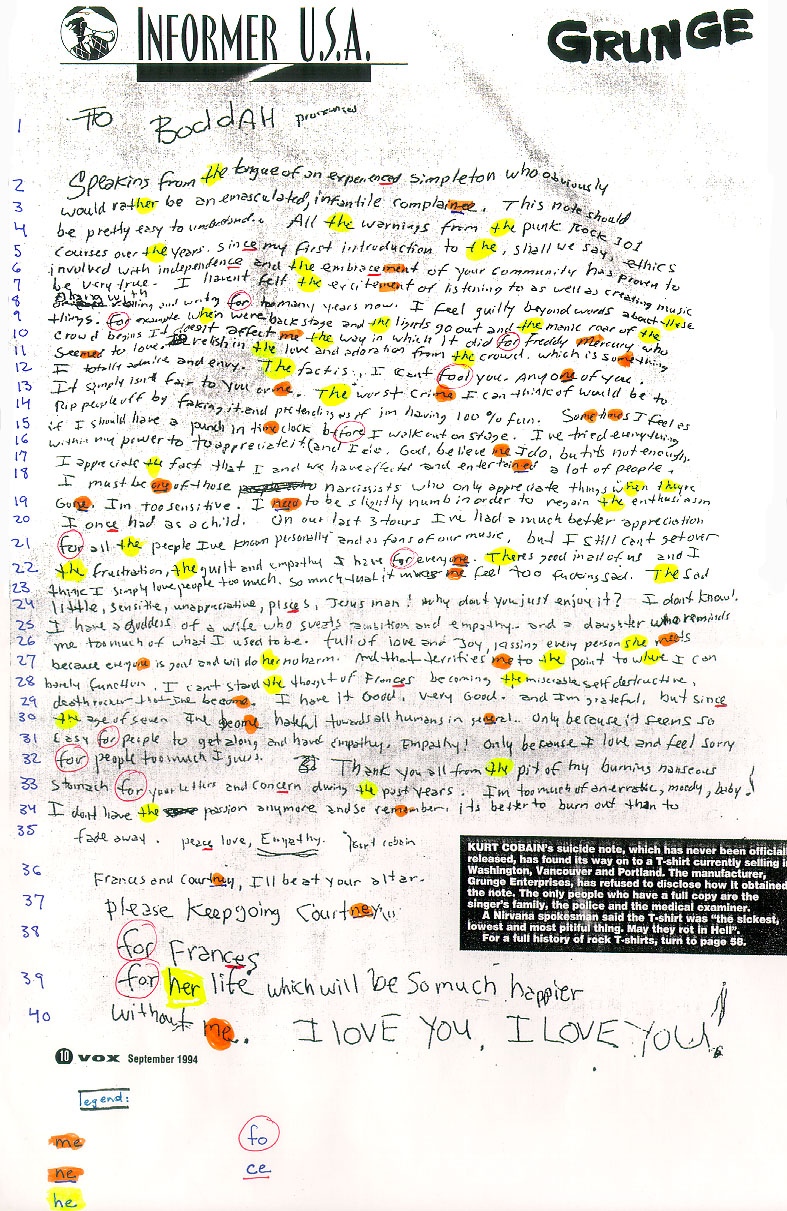 INFORMER U.S.A.
GRUNGE
1 To BoddAH pronounced
2 Speaking from the tongue of an experienced simpleton who obviously
3 would rather be an emasculated, infantile complainee. This note should
4 be pretty easy to understand. All the warnings from the punk rock 101
5 courses over the years. since my first introduction to the, shall we say, ethics
6 involved with independence and the embracement of your community has proven to
7 be very true. I havent felt the excitement of listening to as well as creating music
8 along with and writing for too many years now. I feel guilty beyond words about these
9 things. for example when were backstage and the lights go out and the manic roar of the
10 crowd begins It doesnt affect me the way in which it did for freddy Mercury who
11 seemed to love. relish in the love and adoration from the crowd. which is something
12 I totally admire and envy. The fact is, I cant fool you. Any one of you.
13 It simply isnt fair to you or me. The worst crime I can think of would be to
14 Rip people off by faking it and pretending as if im having 100% fun. Sometimes I feel as
15 if I should have a punch in time clock before I walk out on stage. I've tried everything
16 within my power to to appreciate it (and I do. God, believe me I do, but its not enough.
17 I appreciate the fact that I and we have affected and entertained a lot of people.
18 I must be one of those narcissists who only appreciate things when theyre
19 Gone. Im too sensitive. I need to be slightly numb in order to regain the enthusiasm
20 I once had as a child. On our last 3 tours I've had a much better appreciation
21 for all the people I've known personally and as fans of our music, but I still cant get over
22 the frustration, the guilt and empathy I have for everyone. Theres good in all of us and I
23 think I simply love people too much. So much that it makes me feel too fucking sad. The Sad
24 little, sensitive, unappreciative, pisces, Jesus man! why dont you just enjoy it? I dont know!.
25 I have a goddess of a wife who sweats ambition and empathy. and a daughter who reminds
26 me too much of what I used to be. full of love and Joy, kissing every person she meets
27 because everyone is good and will do her no harm. And that terrifies me to the point to where I can
28 barely function. I can't stand the thought of Frances becoming the miserable self destructive,
29 deathrocker that Ive become. I have it Good. Very Good. and Im grateful, but since
30 the age of seven Ive become hateful towards all humans in general.. Only because it seems so
31 Easy for people to get along and have empathy. Empathy! Only because I love and feel sorry
32 for people too much I guess. Thank you all from the pit of my burning nauseous
33 stomach for your letters and concern during the past years. I'm too much of an erratic, moody, baby!
34 I dont have the passion anymore and so remember. its better to burn out than to
35 fade away. peace love, Empathy. Kurt cobain
36 Frances and Courtney, I'll be at your altar.
37 please keep going Courtney,
38 for Frances
39 for her life which will be so much happier
40 without me. I LOVE YOU. I LOVE YOU!
KURT COBAIN's suicide note, which has never been official
released, has found its way on to a T-shirt currently selling i
Washington, Vancouver and Portland. The manufacturer,
Grunge Enterprises, has refused to disclose how it obtained
the note. The only people who have a full copy are the
singer's family, the police and the medical examiner.
A Nirvana spokesman said the T-shirt was "the sickest,
lowest and most pitiful thing. May they rot in Hell".
For a full history of rock T-shirts, turn to page 58.
10 VOX September 1994
legend:
me fo
ne ce
he